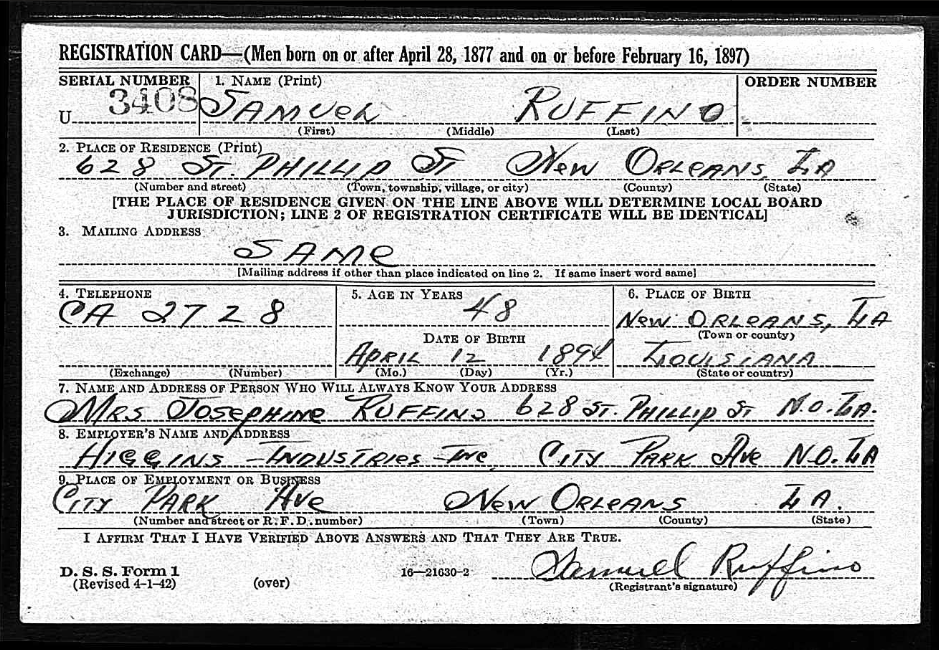 REGISTRATION CARD—(Men born on or after April 28, 1877 and on or before February 16, 1897)
SERIAL NUMBER 1. NAME (Print) ORDER NUMBER
U 3408 SAMUEL RUFFINO
(First) (Middle) (Last)
2. PLACE OF RESIDENCE (Print)
628 ST. PHILLIP ST NEW ORLEANS, LA
(Number and street) (Town, township, village, or city) (County) (State)
[THE PLACE OF RESIDENCE GIVEN ON THE LINE ABOVE WILL DETERMINE LOCAL BOARD
JURISDICTION; LINE 2 OF REGISTRATION CERTIFICATE WILL BE IDENTICAL]
3. MAILING ADDRESS
SAME
[Mailing address if other than place indicated on line 2. If same insert word same]
4. TELEPHONE 5. AGE IN YEARS 6. PLACE OF BIRTH
CA 2728 48 NEW ORLEANS, LA
(Town or county)
DATE OF BIRTH
APRIL 12 1894 LOUISIANA
(Exchange) (Number) (Mo.) (Day) (Yr.) (State or country)
7. NAME AND ADDRESS OF PERSON WHO WILL ALWAYS KNOW YOUR ADDRESS
MRS JOSEPHINE RUFFINO 628 ST. PHILLIP ST N.O. LA.
8. EMPLOYER'S NAME AND ADDRESS
HIGGINS - INDUSTRIES - INC. CITY PARK AVE N.O. LA
9. PLACE OF EMPLOYMENT OR BUSINESS
CITY PARK AVE NEW ORLEANS LA.
(Number and street or R. F. D. number) (Town) (County) (State)
I AFFIRM THAT I HAVE VERIFIED ABOVE ANSWERS AND THAT THEY ARE TRUE.
D. S. S. Form 1
(Revised 4-1-42) (over) 16—21630-2 Samuel Ruffino
(Registrant's signature)